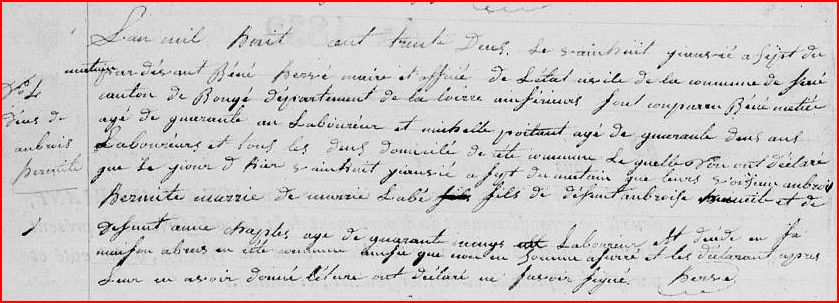 L'an mil huit cent trente Deus. Le vainhuit janvié a sept du
matain
par dévant Réné herve maire et offisié de L'état civile de la commune de
canton de Rougé département de la loirre ainférieurs sont comparu Réné
agé de quarante an Laboureur et agé de quarante deus ans
Laboureurs et tous les deus domicilé de cete commune Le quelle ont déclare
que Le jiour d hier vainhuit janvié a sept de matain que leurs voisein aubrois
hermite marrie de marrie Labé fils de défeunt aubroise et de
defunt anne chaples age de quarante Laboureur est décédé en sa
maison en cete commune ainsie que nous en somme asurré et les déclarant apres
Leur en avoir donné léture ont déclaré ne savoir signé herve
No 4
deus de
aubrois
hermite